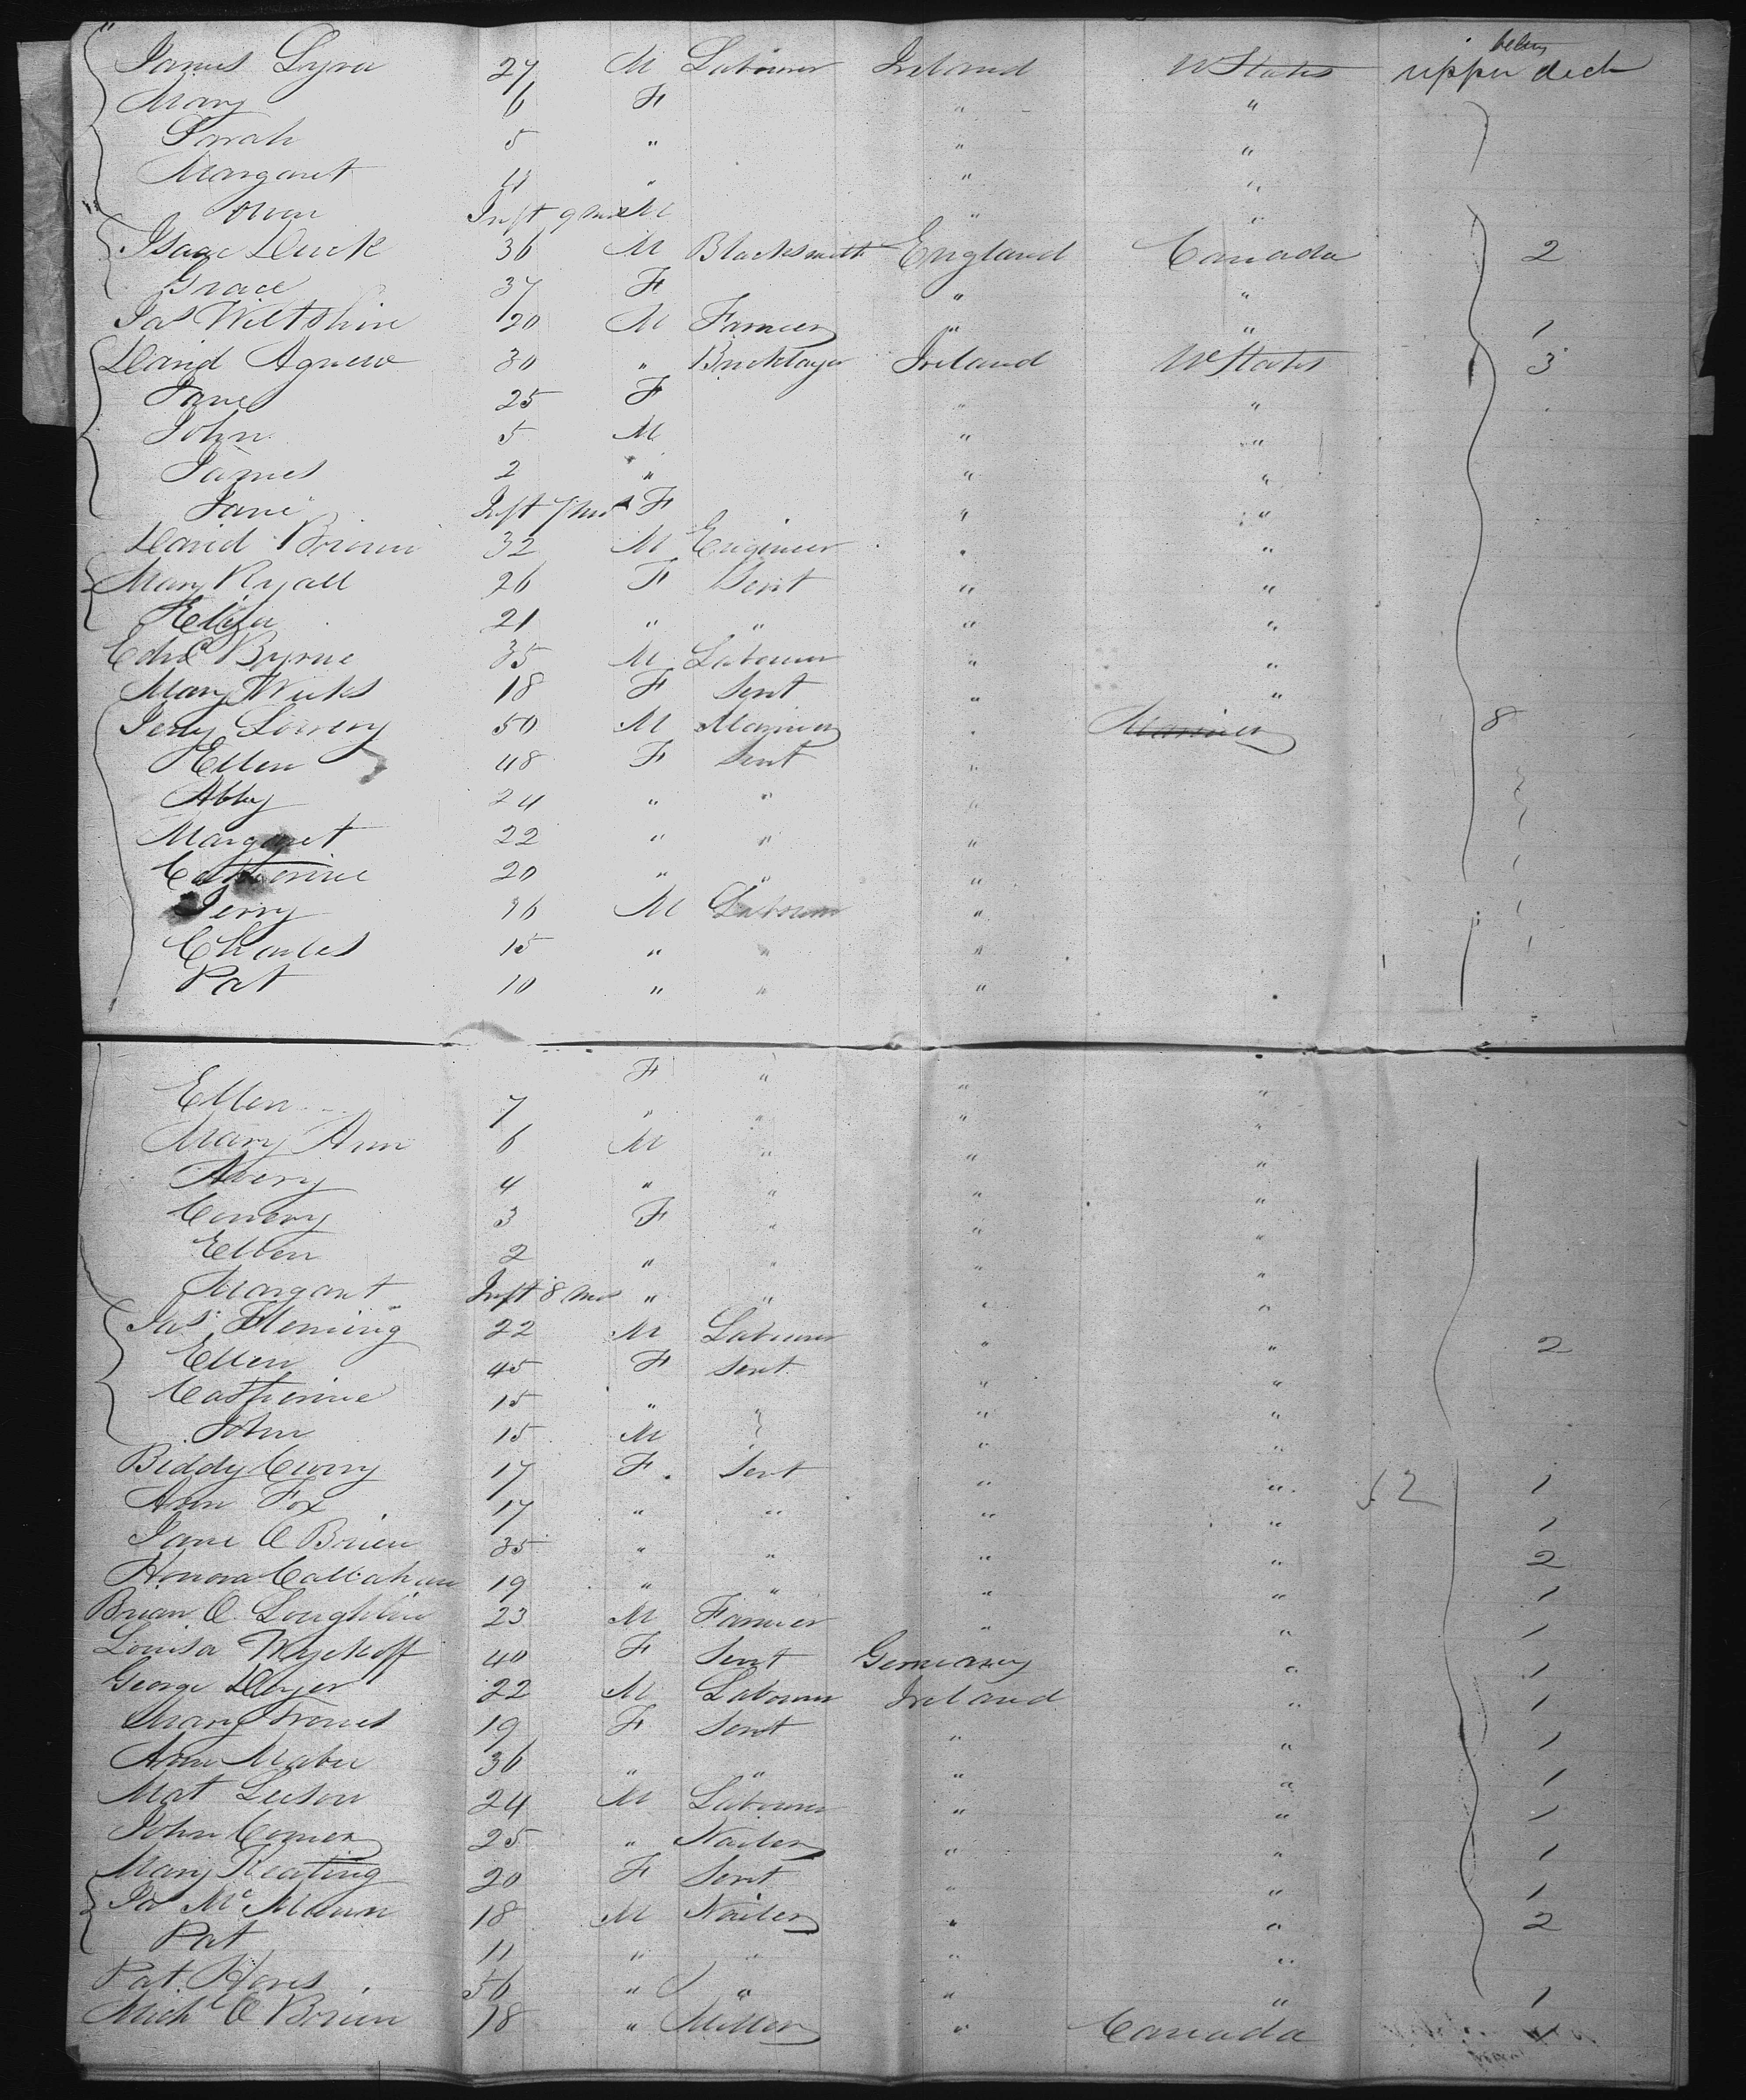 James Lyra 27 M Labourer Ireland U States below upper deck
Mary 6 F " "
Sarah 5 " " "
Margaret 4 " " "
Owen Inft 9 mos M " "
Isaac Duck 36 M Blacksmith England Canada 2
Grace 37 F " "
Jas Wiltshire 20 M Farmer " " 1
David Agnew 30 " Bricklayer Ireland U States 3
Jane 25 F " "
John 5 M " "
James 2 " " "
Jane Inft 7 mos F " "
David Brown 32 M Engineer " "
Mary Ryall 26 F Servt " "
Eliza 21 " " " "
Edwd Byrne 35 M Labourer " "
Mary Weeks 18 F Servt " "
Jerry Lowery 50 M Mariner " Mariner 8
Ellen 48 F Servt "
Abby 24 " " "
Margaret 22 " " "
Catherine 20 " " "
Jerry 16 M Labourer "
Charles 15 " " "
Pat 10 " " "
F " " "
Ellen 7 " " " "
Mary Ann 6 M " " "
Avery 4 " " " "
Conery 3 F " " "
Ellen 2 " " " "
Margaret Inft 8 mos " " " "
Jas Fleming 22 M Labourer " " 2
Ellen 45 F Servt " "
Catherine 15 " " " "
John 15 M " "
Biddy Curry 17 F Servt " " 52 1
Ann Fox 17 " " " " 1
Jane O Brien 35 " " " " 2
Honora Callahan 19 " " " " 1
Brian O Loughlin 23 M Farmer " " 1
Louisa Wyckoff 40 F Servt Germany " 1
George Dwyer 22 M Labourer Ireland " 1
Mary 19 F Servt " " 1
Ann 36 " " " " 1
Mat Leeson 24 M Labourer " " 1
John Comer 25 " Nailer " " 1
Mary Keating 20 F Servt " " 1
Jas McMann 18 M Nailer " " 2
Pat 11 " " " "
Pat 56 " " " " 1
Michl O Brien 18 " Miller " Canada